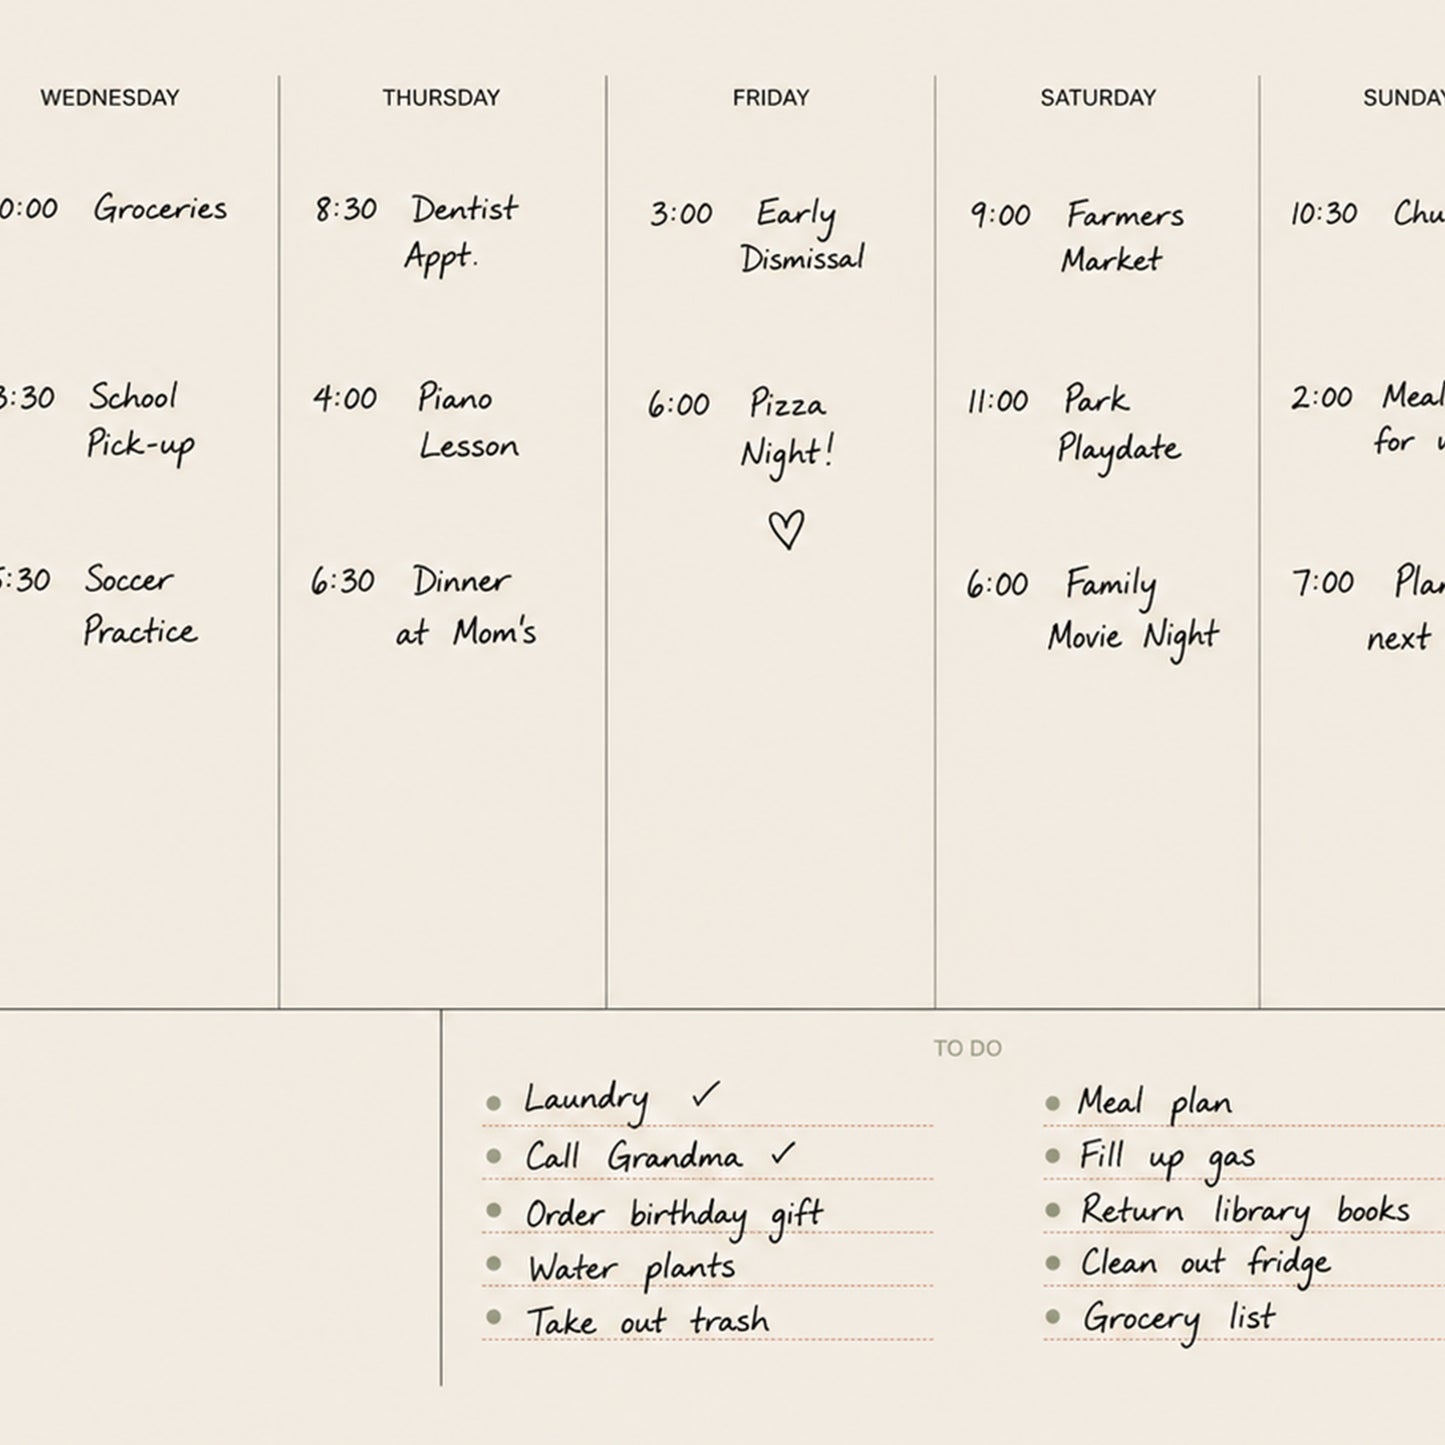 WEDNESDAY
0:00 Groceries
3:30 School
Pick-up
5:30 Soccer
Practice
THURSDAY
8:30 Dentist
Appt.
4:00 Piano
Lesson
6:30 Dinner
at Mom's
FRIDAY
3:00 Early
Dismissal
6:00 Pizza
Night!
SATURDAY
9:00 Farmers
Market
11:00 Park
Playdate
6:00 Family
Movie Night
SUNDAY
10:30 Chu
2:00 Meal
for
7:00 Plan
next
TO DO
Laundry ✓
Call Grandma ✓
Order birthday gift
Water plants
Take out trash
Meal plan
Fill up gas
Return library books
Clean out fridge
Grocery list